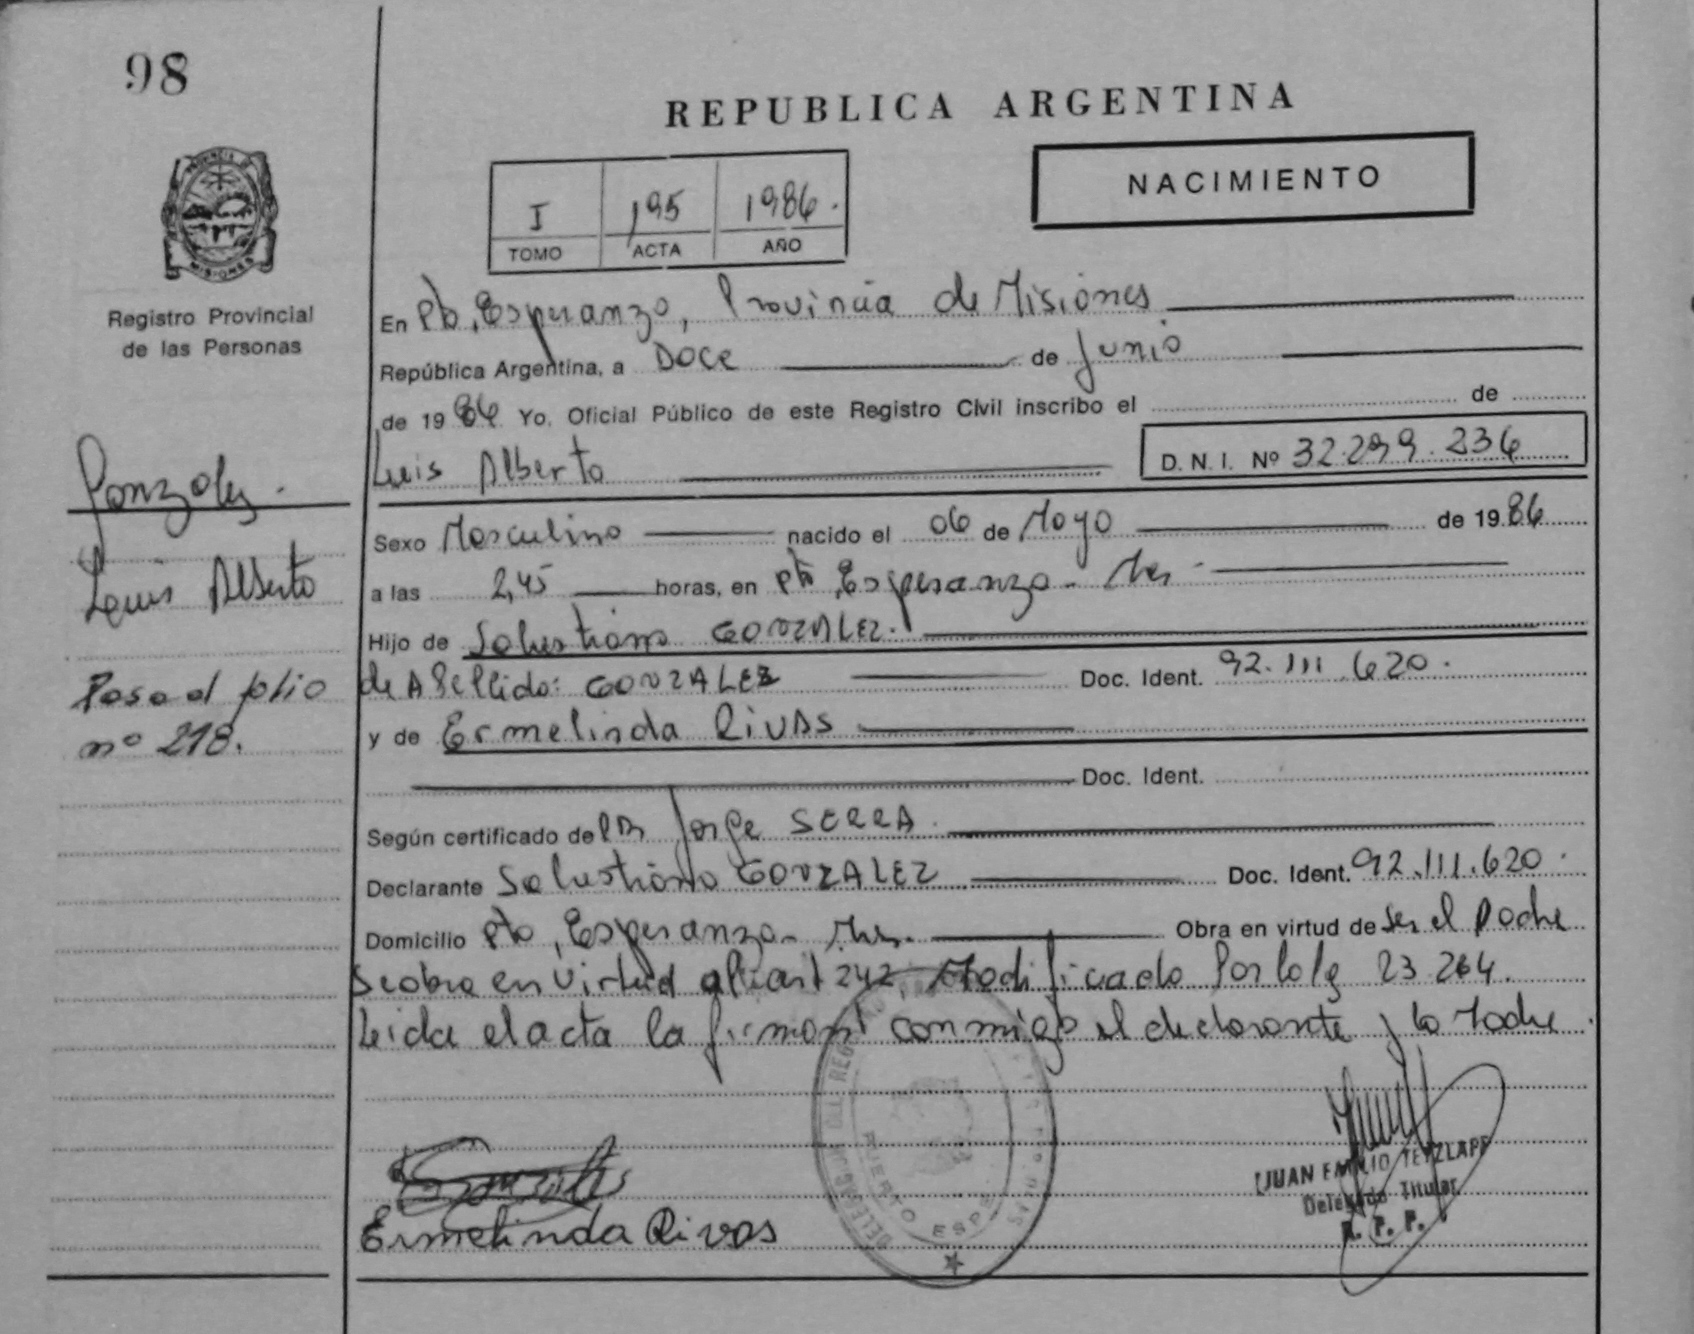 98
REPUBLICA ARGENTINA
NACIMIENTO
I 195 1986.
TOMO ACTA AÑO
MISIONES
Registro Provincial
de las Personas
Gonzalez.
Luis Alberto
Pasa al folio
nº 218.
En Pto, Esperanza, Provincia de Misiones
República Argentina, a Doce de Junio
de 1986 Yo, Oficial Público de este Registro Civil inscribo el de
Luis Alberto D. N. I. Nº 32.299.236
Sexo Masculino nacido el 06 de Mayo de 1986
a las 2,45 horas, en Pto Esperanza - Mnes
Hijo de Salustiano GONZALEZ.
de Apellido: GONZALEZ Doc. Ident. 92.111.620.
y de Ermelinda Rivas
Doc. Ident.
Según certificado de Dr Jorge SERRA.
Declarante Salustiano GONZALEZ Doc. Ident. 92.111.620.
Domicilio Pto, Esperanza - Mnes. Obra en virtud de ser el Padre
Scobra en virtud al art 242, Modificado Por la ley 23.264.
Leida el acta la firman conmigo el declarante y la Madre.
DELEGACION DEL REG
PUERTO ESPE
Ermelinda Rivas
JUAN EMILIO TETZLAFF
Delegado Titular
R. P. P.